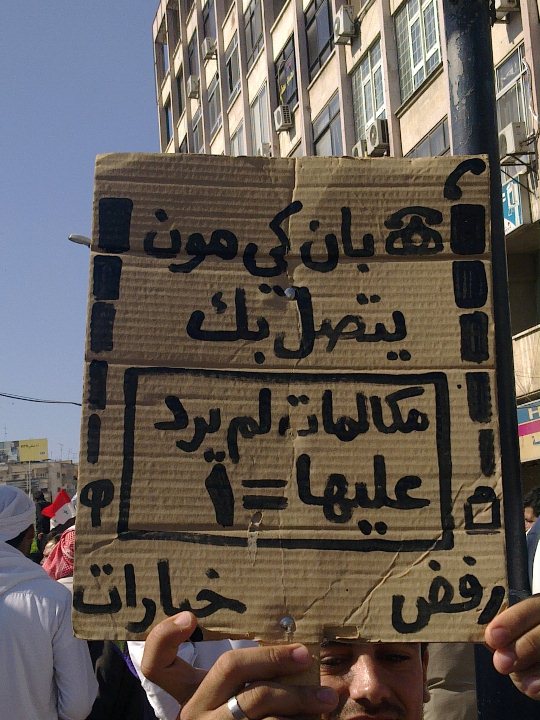 بان كي مون
يتصل بك
مكالمات لم يرد
عليها = ١
رفض خيارات